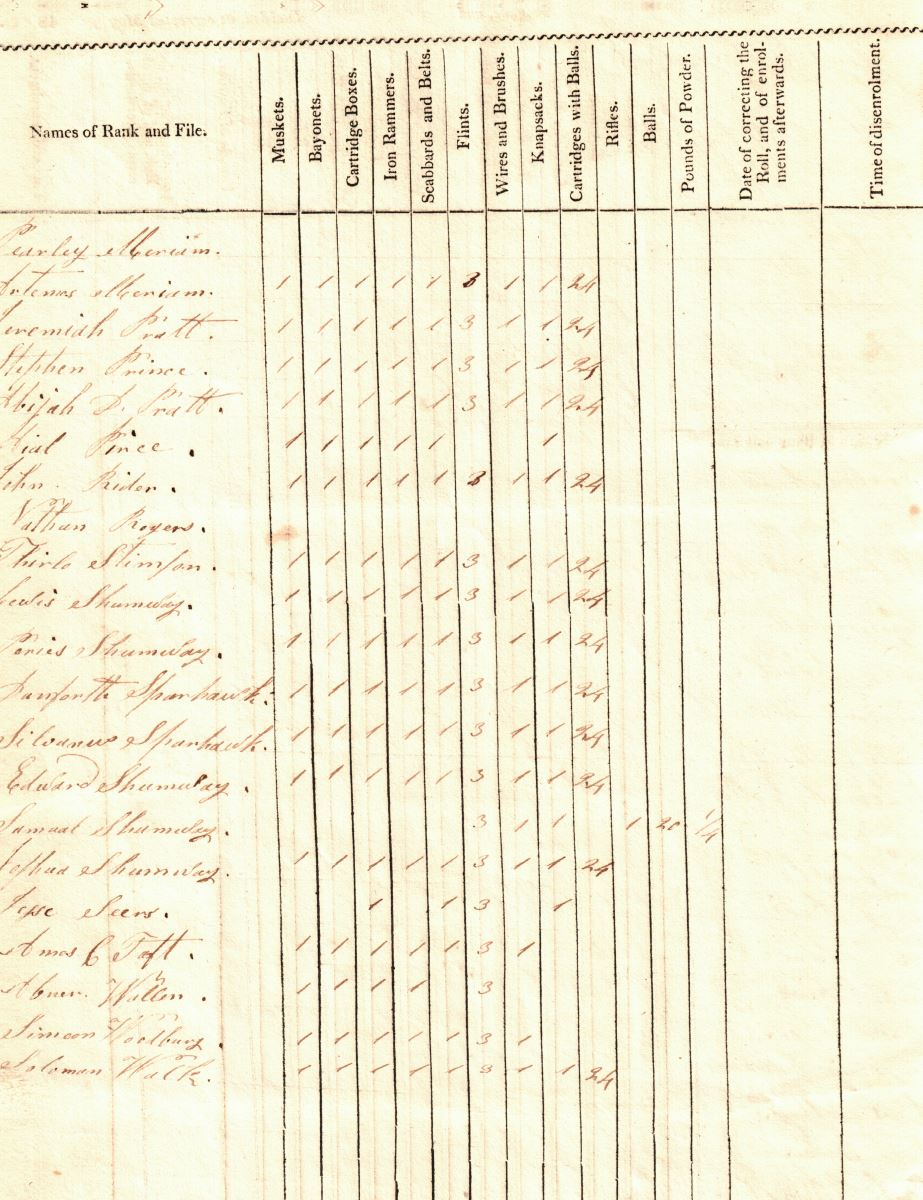 Names of Rank and File. Muskets. Bayonets. Cartridge Boxes. Iron Rammers. Scabbards and Belts. Flints. Wires and Brushes. Knapsacks. Cartridges with Balls. Rifles. Balls. Pounds of Powder. Date of correcting the Roll, and of enrolments afterwards. Time of disenrolment.
Pearley Meriam.
Artemas Meriam. 1 1 1 1 1 3 1 1 24
Jeremiah Pratt. 1 1 1 1 1 3 1 1 24
Stephen Prince. 1 1 1 1 1 3 1 1 24
Abijah D. Pratt. 1 1 1 1 1 3 1 1 24
Pirce. 1 1 1 1 1 1
John Rider. 1 1 1 1 1 3 1 1 24
Nathan Rogers.
Stimson. 1 1 1 1 1 3 1 1 24
Lewis Shumway. 1 1 1 1 1 3 1 1 24
Shumway. 1 1 1 1 1 3 1 1 24
Danforth Sparhawk. 1 1 1 1 1 3 1 1 24
Silvanus Sparhawk. 1 1 1 1 1 3 1 1 24
Edward Shumway. 1 1 1 1 1 3 1 1 24
Samual Shumway. 3 1 1 1 20 1/4
Joshua Shumway. 1 1 1 1 1 3 1 1 24
Jesse Seers. 1 1 3 1
Amos C Taft. 1 1 1 1 1 3 1
Abner Wallen. 1 1 1 1 3
Simeon Woolbury. 1 1 1 1 1 3 1
Soloman Walk. 1 1 1 1 1 3 1 1 24